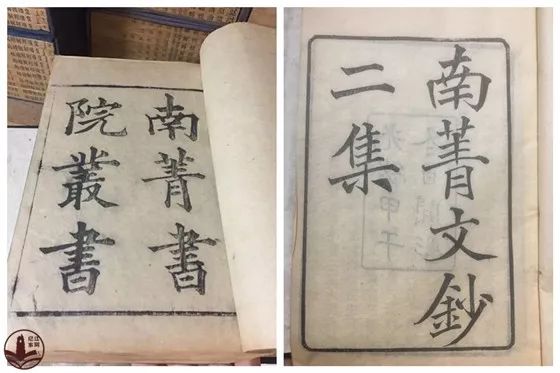 南菁書
院叢書
南菁文鈔
二集